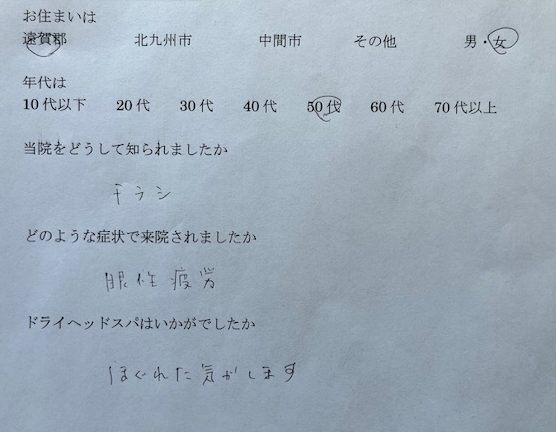 お住まいは
遠賀郡 北九州市 中間市 その他 男・女
年代は
10代以下 20代 30代 40代 50代 60代 70代以上
当院をどうして知られましたか
チラシ
どのような症状で来院されましたか
眼性疲労
ドライヘッドスパはいかがでしたか
ほぐれた気がします